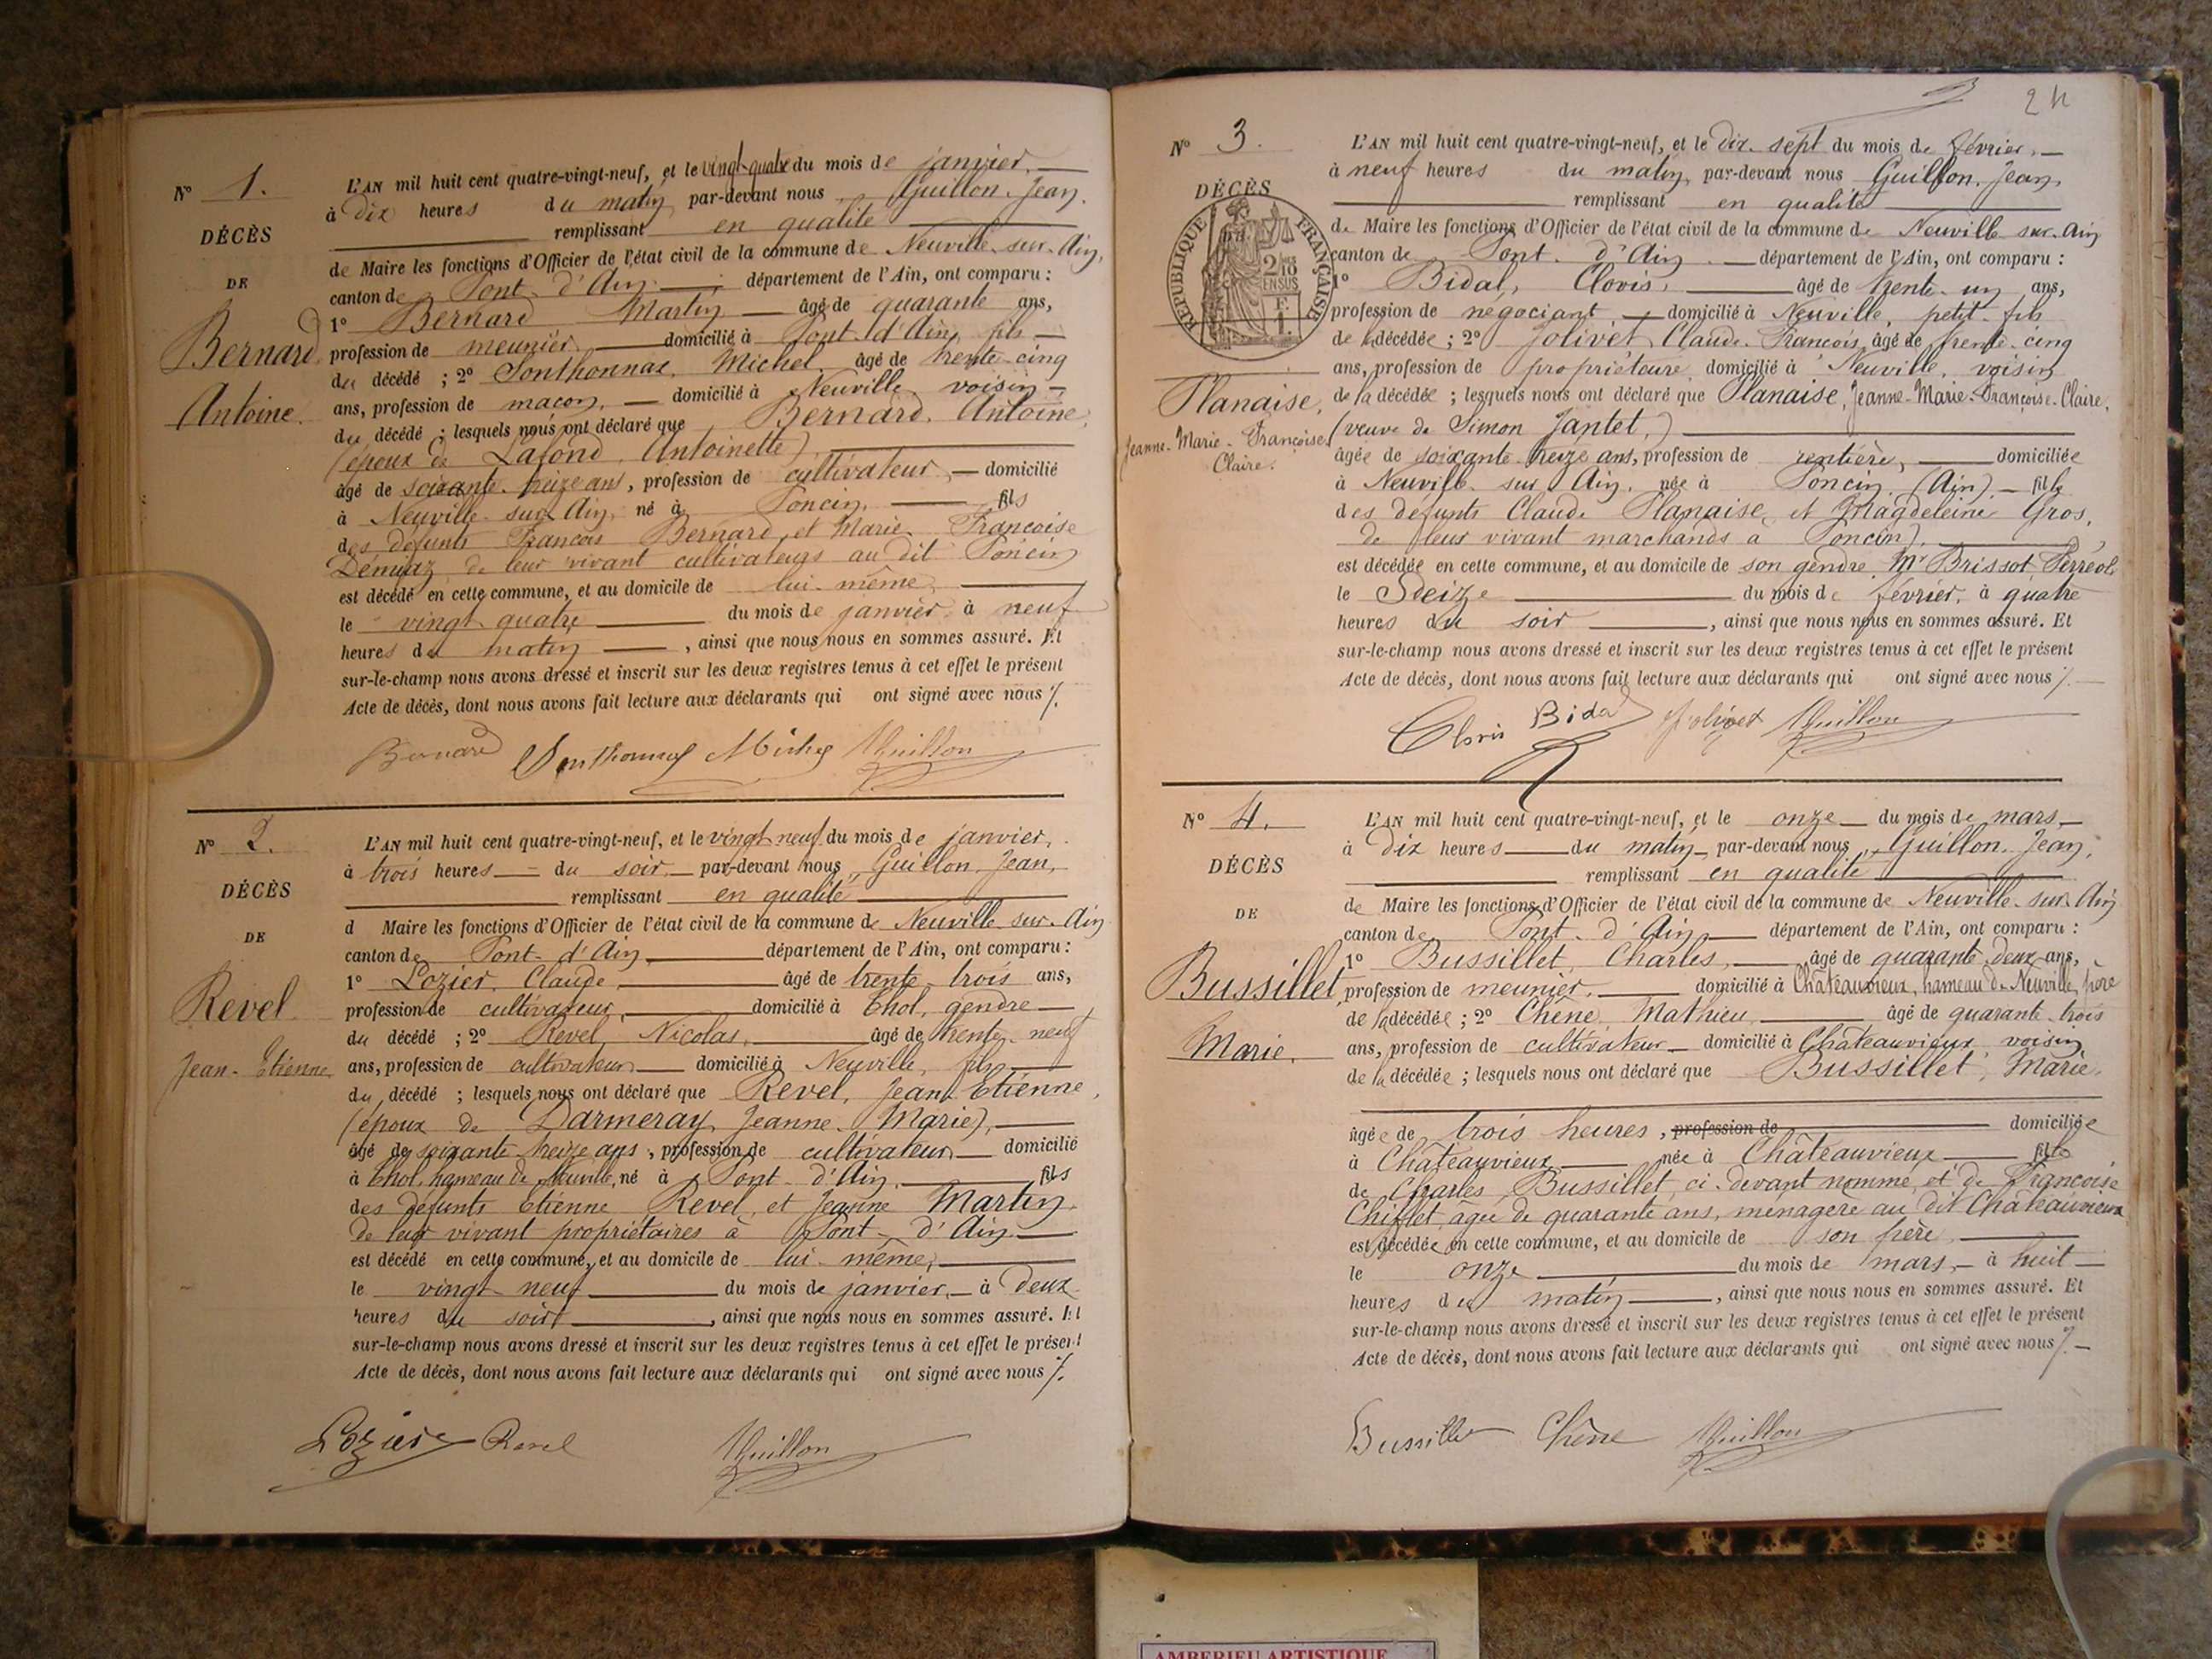 N° 1.
DÉCÈS
DE
Bernard
Antoine.
L'AN mil huit cent quatre-vingt-neuf, et le vingt-quatre du mois de janvier,
à dix heures du matin, par-devant nous Guillon, Jean,
remplissant en qualité
de Maire les fonctions d'Officier de l'état civil de la commune de Neuville-sur-Ain,
canton de Pont-d'Ain, département de l'Ain, ont comparu :
1° Bernard Martin âgé de quarante ans,
profession de meunier domicilié à Pont-d'Ain, fils
du décédé ; 2° Ponthonnac, Michel, âgé de trente-cinq
ans, profession de maçon, domicilié à Neuville, voisin
du décédé ; lesquels nous ont déclaré que Bernard, Antoine,
(époux de Lafond, Antoinette),
âgé de soixante-treize ans, profession de cultivateur, domicilié
à Neuville-sur-Ain, né à Poncin, fils
des défunts François Bernard et Marie-Françoise
de leur vivant cultivateurs au dit Poncin
est décédé en cette commune, et au domicile de lui-même,
le vingt-quatre du mois de janvier, à neuf
heures du matin, ainsi que nous nous en sommes assuré. Et
sur-le-champ nous avons dressé et inscrit sur les deux registres tenus à cet effet le présent
Acte de décès, dont nous avons fait lecture aux déclarants qui ont signé avec nous ./.
Bernard Michel JGuillon
N° 2.
DÉCÈS
DE
Revel
Jean-Etienne.
L'AN mil huit cent quatre-vingt-neuf, et le vingt-neuf du mois de janvier,
à trois heures du soir, par-devant nous, Guillon, Jean,
remplissant en qualité
d Maire les fonctions d'Officier de l'état civil de la commune de Neuville-sur-Ain
canton de Pont-d'Ain, département de l'Ain, ont comparu :
1° Lozier, Claude, âgé de trente-trois ans,
profession de cultivateur, domicilié à Thol, gendre
du décédé ; 2° Revel, Nicolas, âgé de trente-neuf
ans, profession de cultivateur domicilié à Neuville, fils
du décédé ; lesquels nous ont déclaré que Revel, Jean-Etienne,
(époux de Darmeray, Jeanne-Marie),
âgé de soixante-treize ans, profession de cultivateur domicilié
à Thol, hameau de Neuville, né à Pont-d'Ain, fils
des défunts Etienne Revel, et Jeanne Martin,
de leur vivant propriétaires à Pont-d'Ain
est décédé en cette commune, et au domicile de lui-même,
le vingt-neuf du mois de janvier, à deux
heures du soir, ainsi que nous nous en sommes assuré. Et
sur-le-champ nous avons dressé et inscrit sur les deux registres tenus à cet effet le présent
Acte de décès, dont nous avons fait lecture aux déclarants qui ont signé avec nous ./.
Lozier Revel JGuillon
N° 3.
DÉCÈS
RÉPUBLIQUE FRANÇAISE
2/10
EN SUS
Planaise,
Jeanne-Marie-Françoise
Claire.
L'AN mil huit cent quatre-vingt-neuf, et le dix-sept du mois de février,
à neuf heures du matin, par-devant nous Guillon, Jean,
remplissant en qualité
de Maire les fonctions d'Officier de l'état civil de la commune de Neuville-sur-Ain
canton de Pont-d'Ain département de l'Ain, ont comparu :
1° Bidal, Clovis, âgé de trente-un ans,
profession de négociant, domicilié à Neuville, petit-fils
de la décédée ; 2° Jolivet Claude-François, âgé de trente-cinq
ans, profession de propriétaire domicilié à Neuville, voisin
de la décédée ; lesquels nous ont déclaré que Planaise, Jeanne-Marie-Françoise-Claire,
(veuve de Simon Jantet,)
âgée de soixante-treize ans, profession de rentière, domiciliée
à Neuville-sur-Ain, née à Poncin (Ain), fille
des défunts Claude Planaise, et Magdeleine Gros,
de leur vivant marchands à Poncin),
est décédée en cette commune, et au domicile de son gendre, Mr Brissot Ferréol,
le Seize du mois de février, à quatre
heures du soir, ainsi que nous nous en sommes assuré. Et
sur-le-champ nous avons dressé et inscrit sur les deux registres tenus à cet effet le présent
Acte de décès, dont nous avons fait lecture aux déclarants qui ont signé avec nous ./.
Clovis Bidal Jolivet JGuillon
N° 4.
DÉCÈS
DE
Bussillet,
Marie.
L'AN mil huit cent quatre-vingt-neuf, et le onze du mois de mars,
à dix heures du matin, par-devant nous, Guillon, Jean,
remplissant en qualité
de Maire les fonctions d'Officier de l'état civil de la commune de Neuville-sur-Ain
canton de Pont-d'Ain département de l'Ain, ont comparu :
1° Bussillet, Charles, âgé de quarante-deux ans,
profession de meunier, domicilié à Châteauvieux, hameau de Neuville, père
de la décédée ; 2° Chêne, Mathieu, âgé de quarante-trois
ans, profession de cultivateur domicilié à Châteauvieux, voisin
de la décédée ; lesquels nous ont déclaré que Bussillet, Marie,
âgée de trois heures, profession de domiciliée
à Châteauvieux, née à Châteauvieux fille
de Charles Bussillet, ci-devant nommé, et de Françoise
Chifflet, âgée de quarante ans, ménagère au dit Châteauvieux
est décédée en cette commune, et au domicile de son père,
le onze du mois de mars, à huit
heures du matin, ainsi que nous nous en sommes assuré. Et
sur-le-champ nous avons dressé et inscrit sur les deux registres tenus à cet effet le présent
Acte de décès, dont nous avons fait lecture aux déclarants qui ont signé avec nous ./.
Bussillet Chêne JGuillon
AMBERIEU ARTISTIQUE